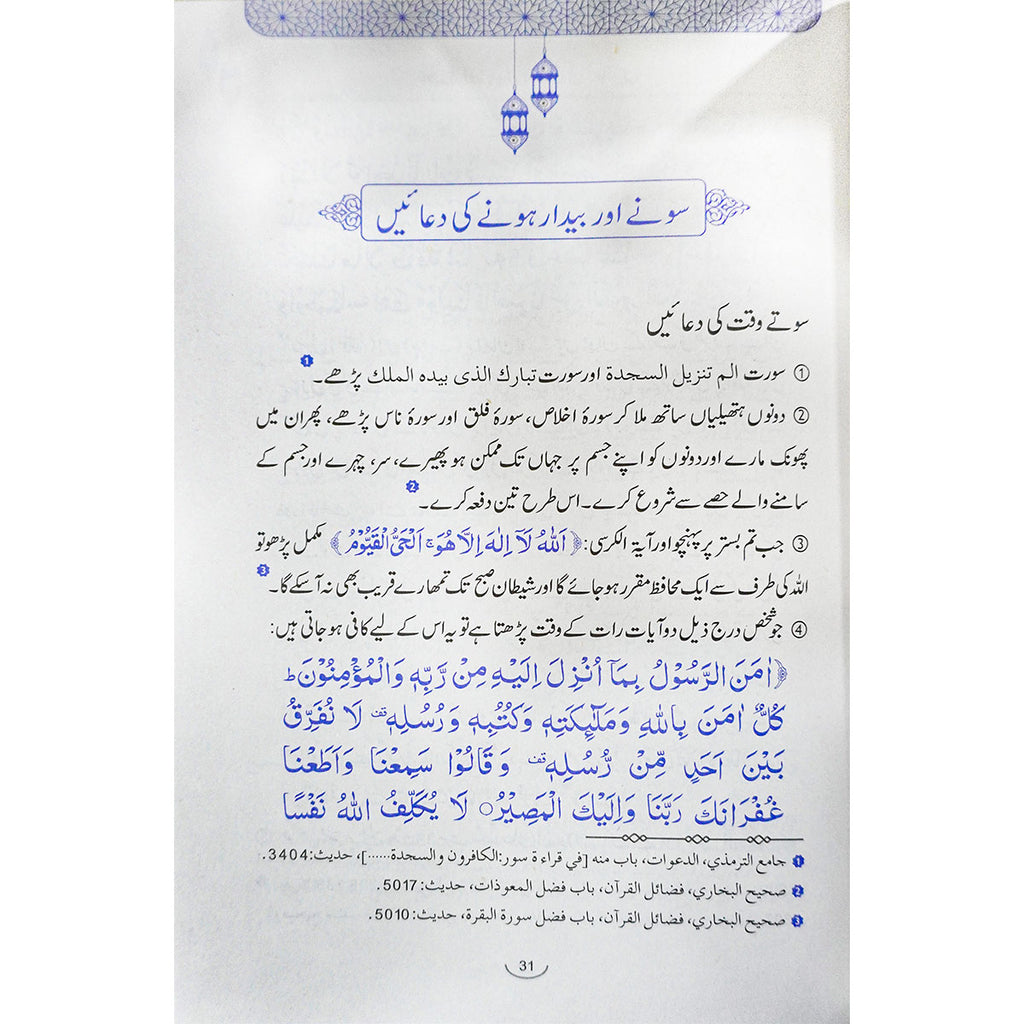 سونے اور بیدار ہونے کی دعائیں
سوتے وقت کی دعائیں
① سورت الم تنزیل السجدۃ اور سورت تبارك الذی بیدہ الملك پڑھے۔ ❶
② دونوں ہتھیلیاں ساتھ ملا کر سورۂ اخلاص، سورۂ فلق اور سورۂ ناس پڑھے، پھر ان میں
پھونک مارے اور دونوں کو اپنے جسم پر جہاں تک ممکن ہو پھیرے، سر، چہرے اور جسم کے
سامنے والے حصے سے شروع کرے۔ اس طرح تین دفعہ کرے۔ ❷
③ جب تم بستر پر پہنچو اور آیۃ الکرسی: ﴿اَللّٰهُ لَآ اِلٰهَ اِلَّا هُوَ ۚ اَلْحَیُّ الْقَیُّوْمُ﴾ مکمل پڑھو تو
اللہ کی طرف سے ایک محافظ مقرر ہو جائے گا اور شیطان صبح تک تمھارے قریب بھی نہ آ سکے گا۔ ❸
④ جو شخص درج ذیل دو آیات رات کے وقت پڑھتا ہے تو یہ اس کے لیے کافی ہو جاتی ہیں:
﴿اٰمَنَ الرَّسُوْلُ بِمَآ اُنْزِلَ اِلَیْهِ مِنْ رَّبِّهٖ وَالْمُؤْمِنُوْنَ ؕ
كُلٌّ اٰمَنَ بِاللّٰهِ وَمَلٰٓئِكَتِهٖ وَكُتُبِهٖ وَرُسُلِهٖ ۟ لَا نُفَرِّقُ
بَیْنَ اَحَدٍ مِّنْ رُّسُلِهٖ ۟ وَقَالُوْا سَمِعْنَا وَاَطَعْنَا
غُفْرَانَكَ رَبَّنَا وَاِلَیْكَ الْمَصِیْرُ ○ لَا یُكَلِّفُ اللّٰهُ نَفْسًا
❶ جامع الترمذي، الدعوات، باب منه [في قراءة سور: الكافرون والسجدة......]، حديث: 3404.
❷ صحيح البخاري، فضائل القرآن، باب فضل المعوذات، حديث: 5017.
❸ صحيح البخاري، فضائل القرآن، باب فضل سورة البقرة، حديث: 5010.
31